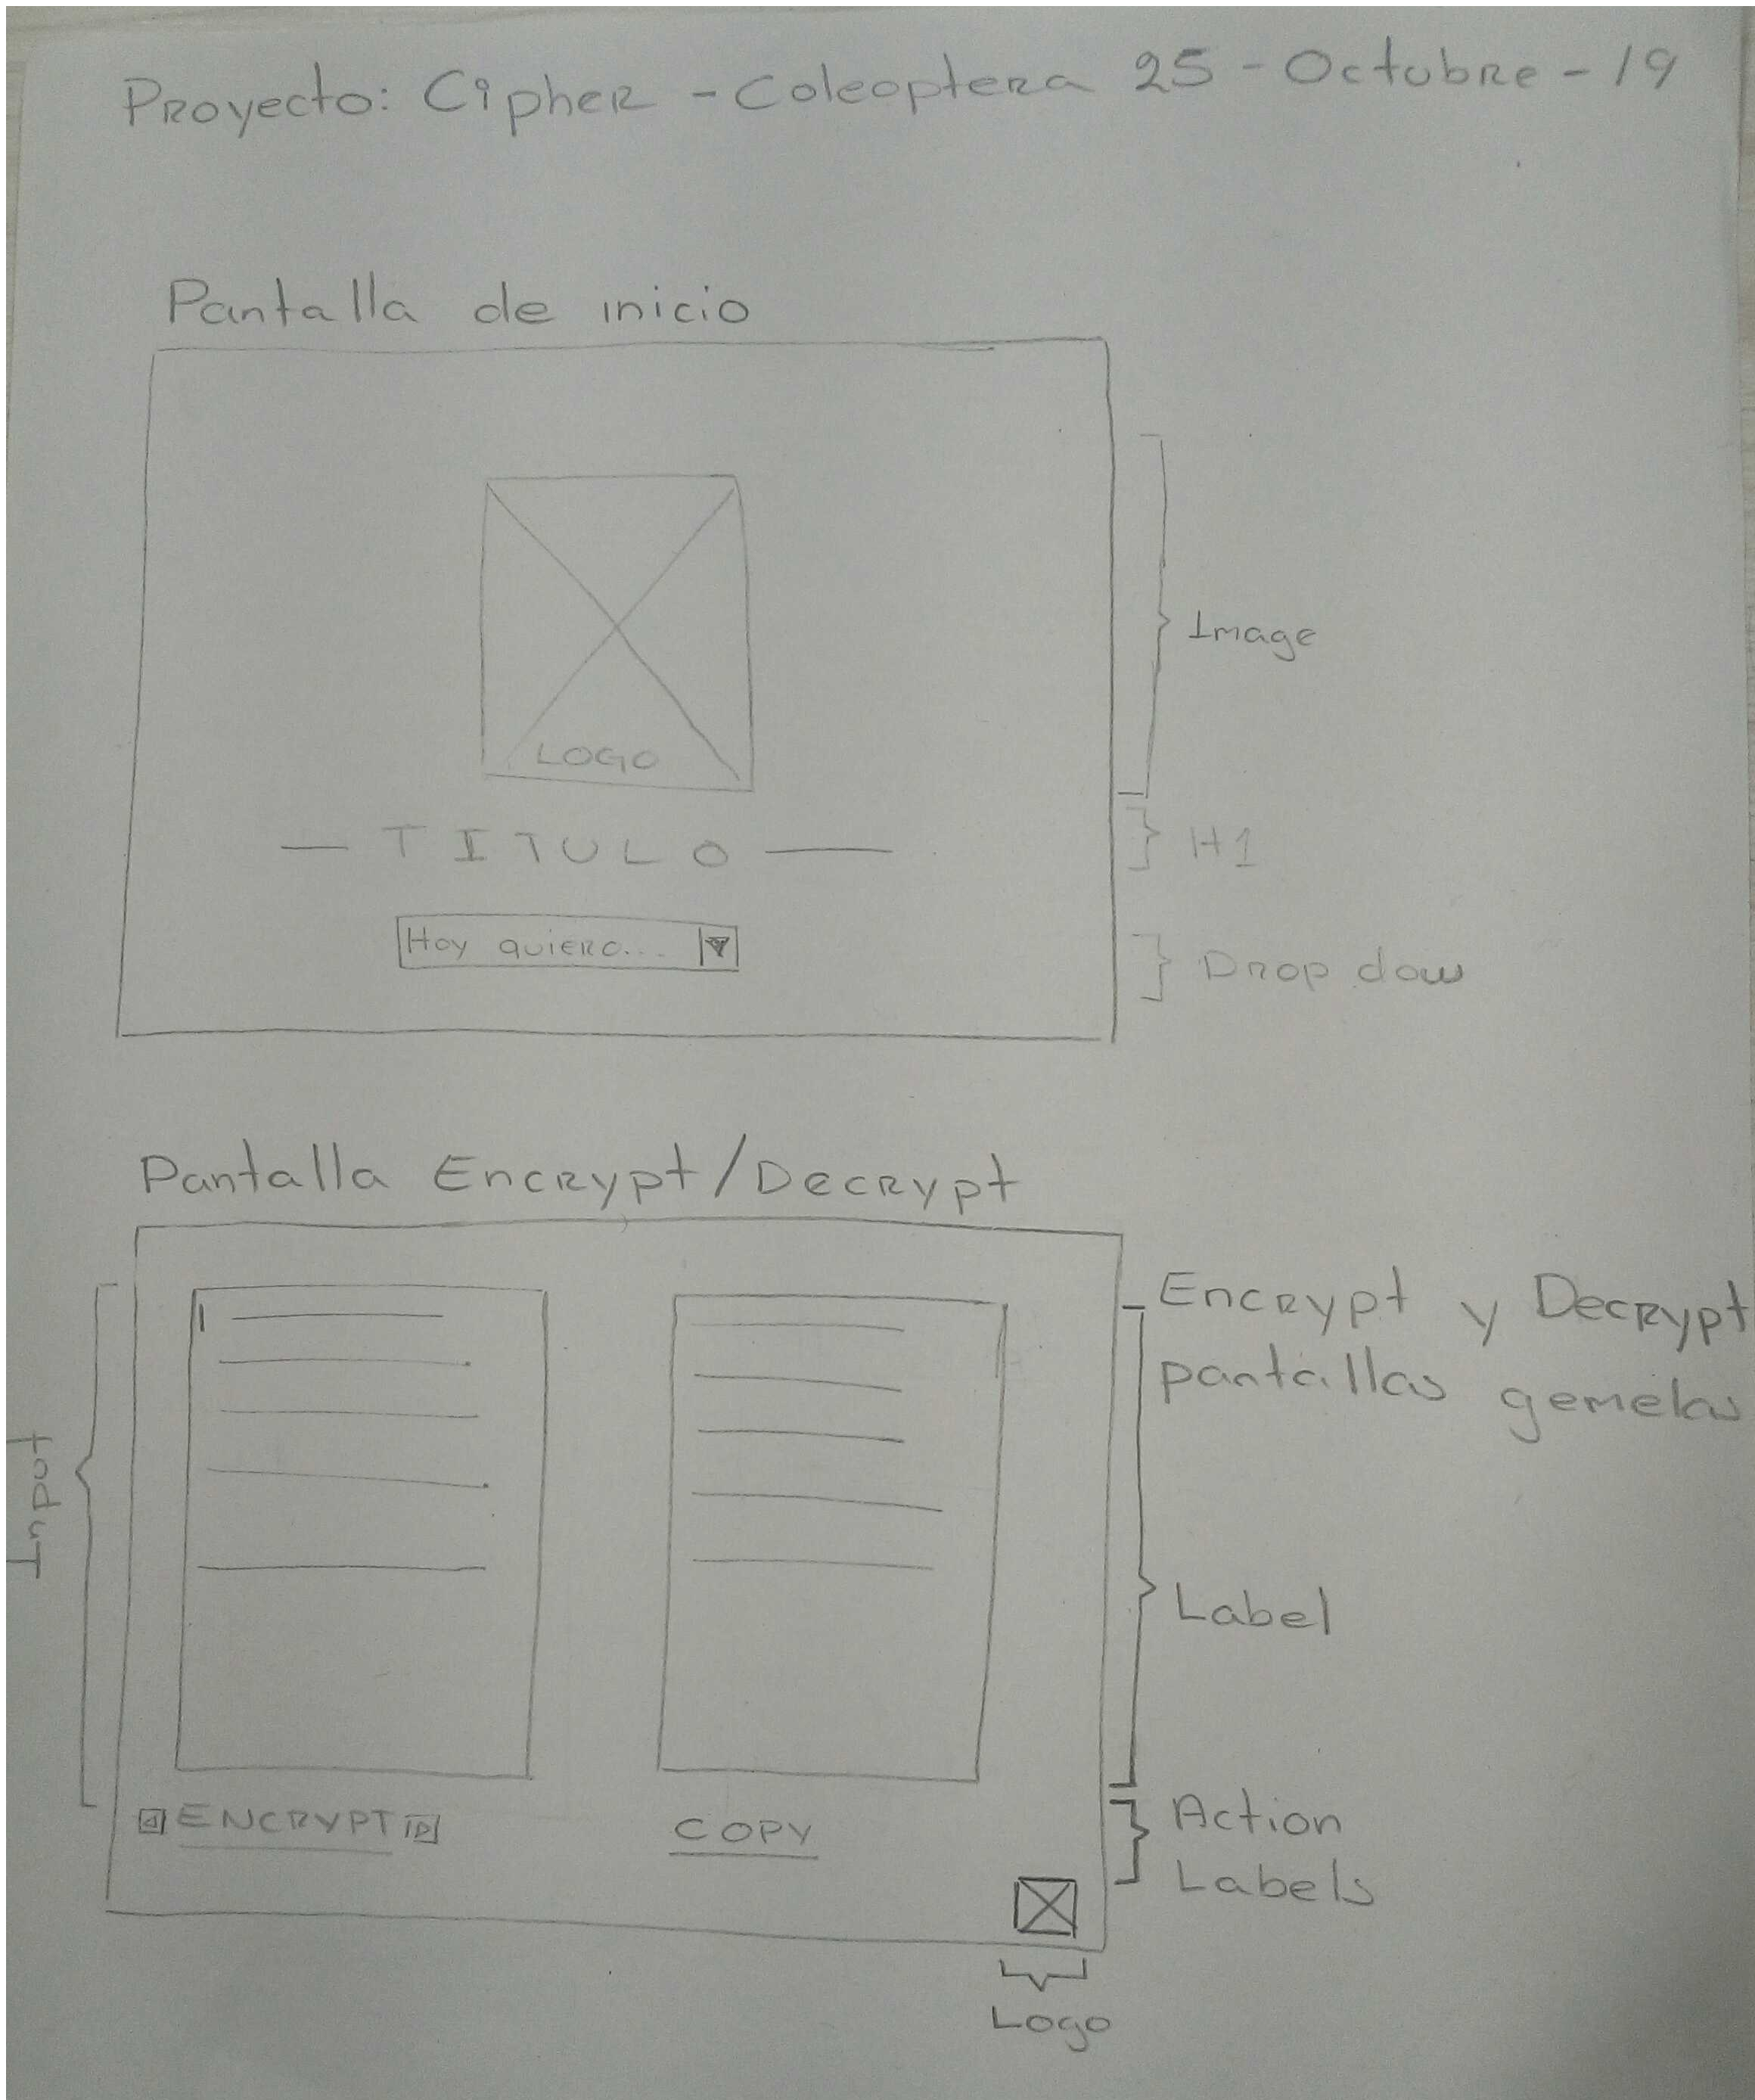 Proyecto: Cipher - Coleoptera 25 - Octubre - 19
Pantalla de inicio
Image
LOGO
— TITULO —
H1
Hoy quiero...
Drop dow
Pantalla Encrypt/Decrypt
Encrypt y Decrypt
pantallas gemelas
Input
Label
ENCRYPT
COPY
Action
Labels
Logo